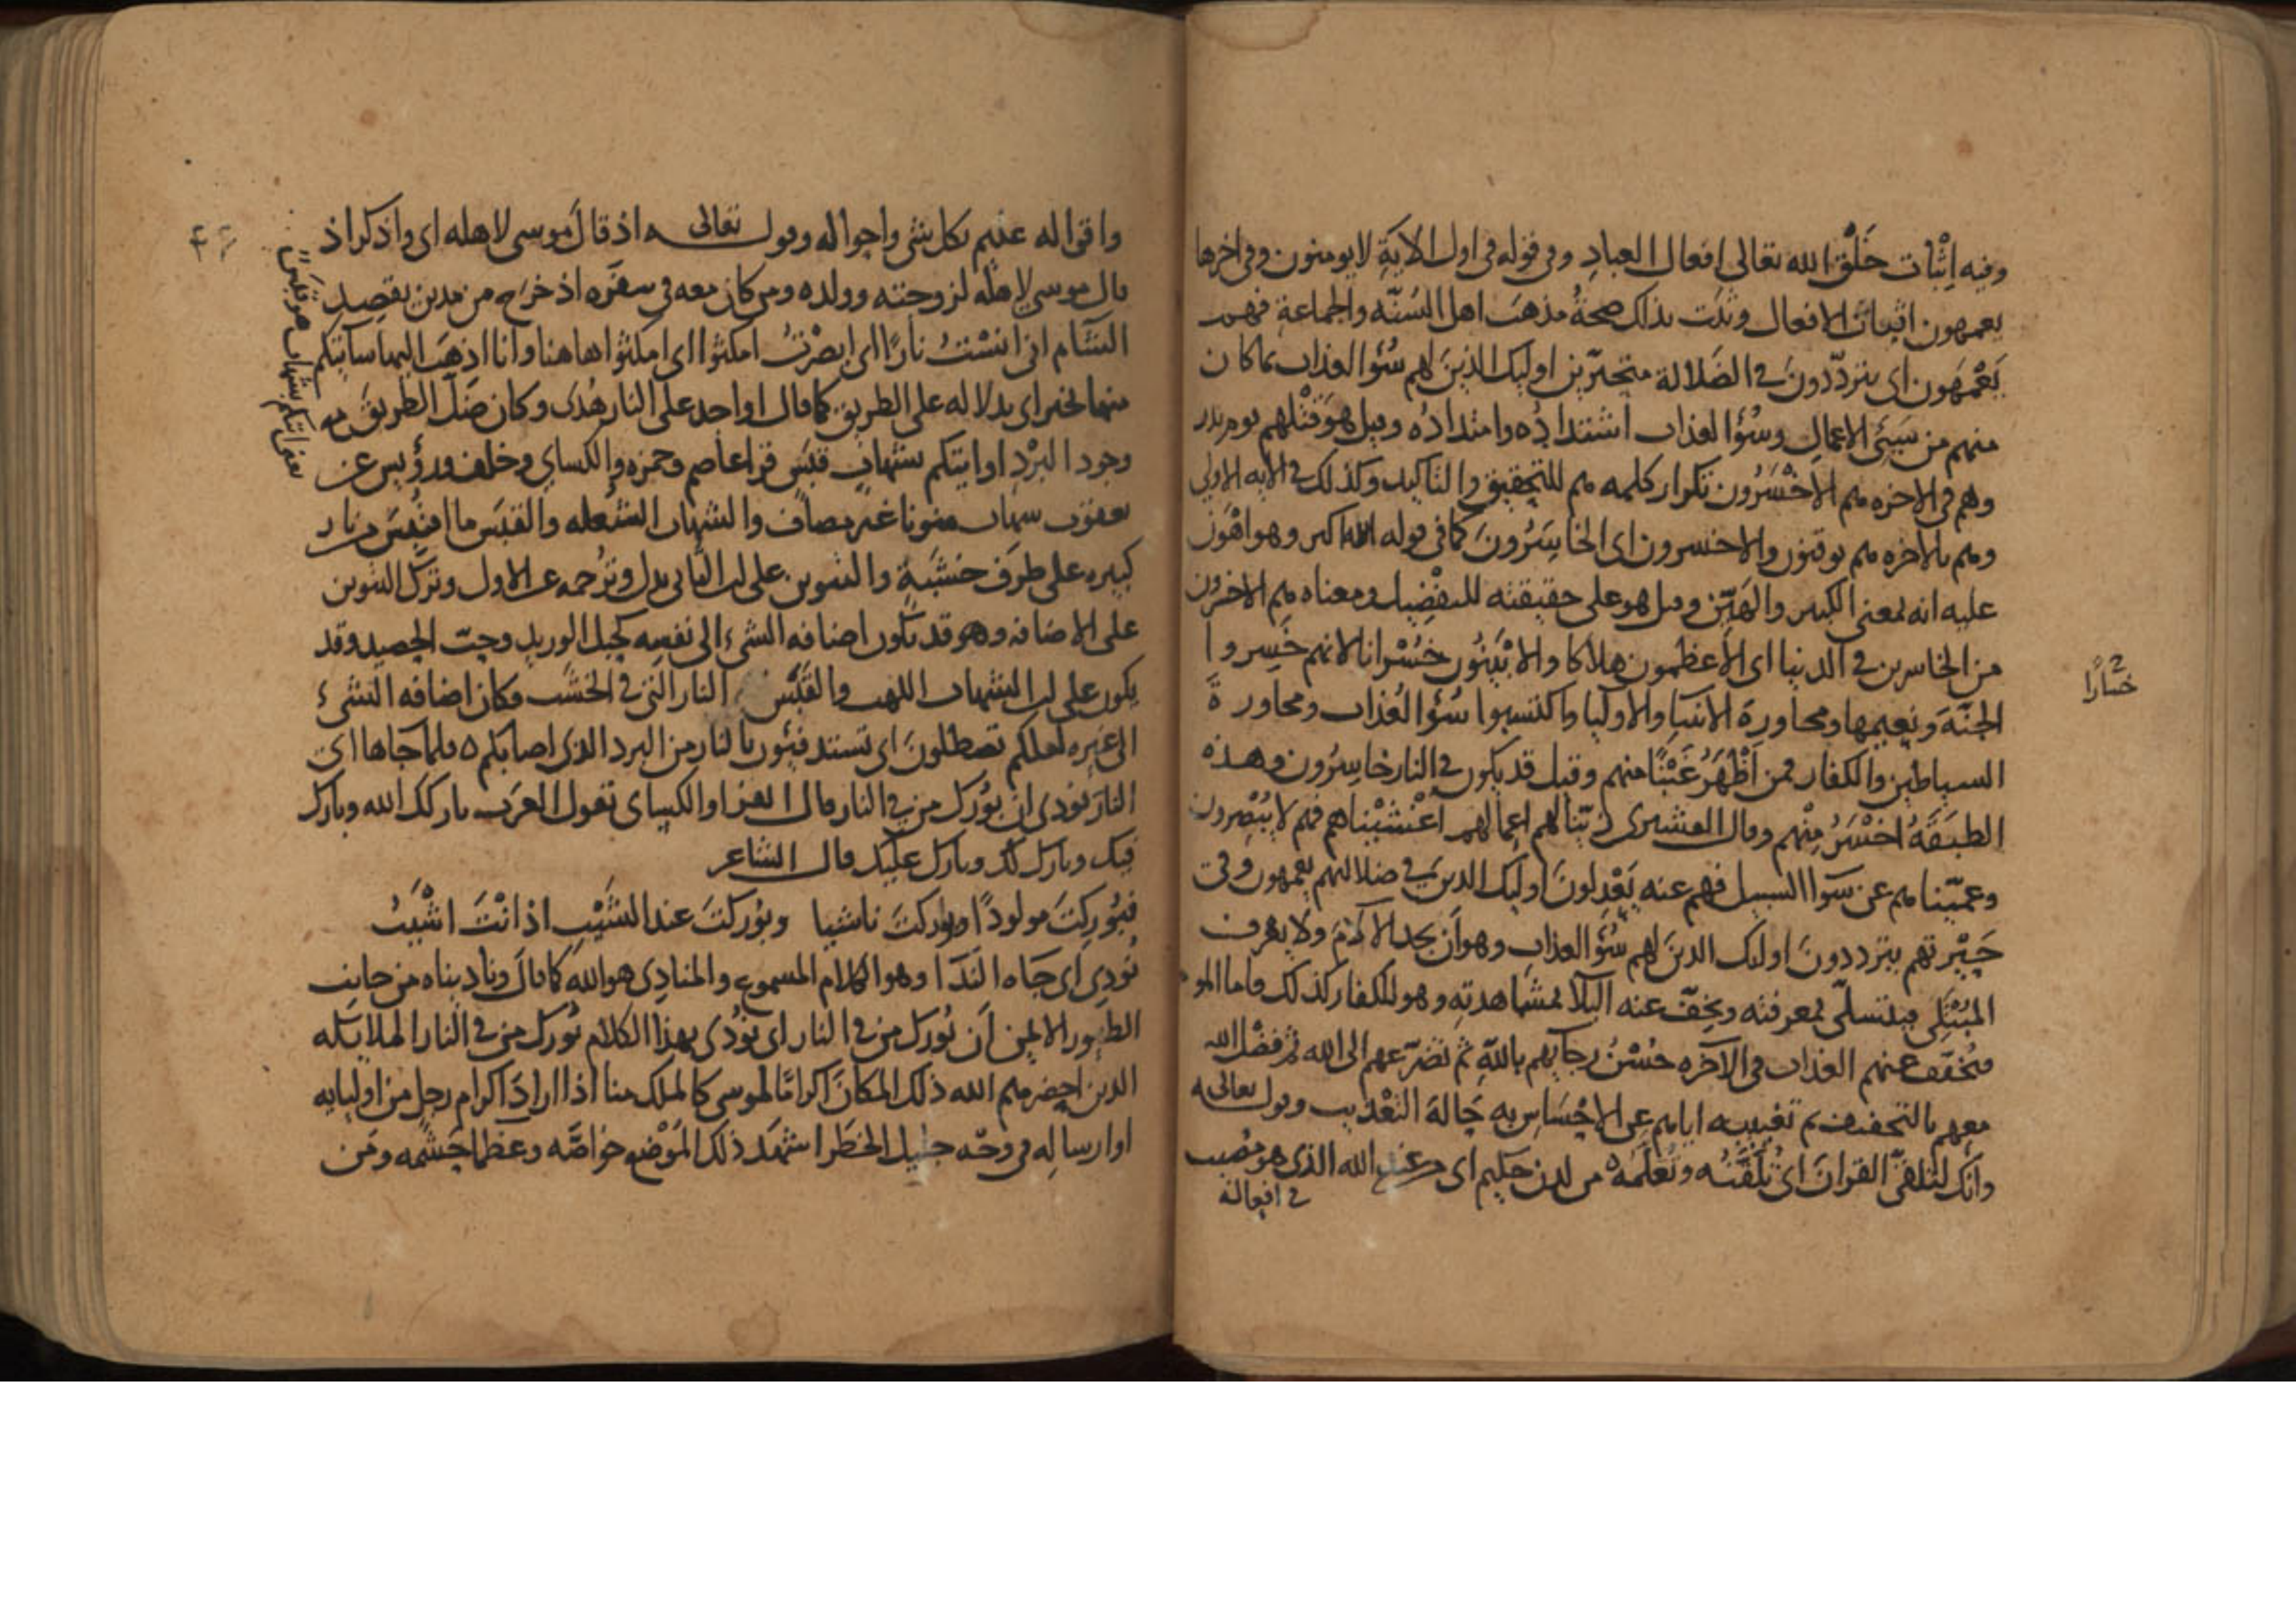 وفيه إثبات خَلْق الله تعالى افعال العباد وفي قوله في اول الآية لا يومنون وفي اخرها
يعمهون اثبات الافعال وثبت بذلك صحةُ مذهب اهل السُنّه والجماعة فهم
يَعْمَهون اى يتردّدونَ في الضَلالة متحيّرين اوليك الذين لهم سُوء العذاب بما كان
منهم من سَيِّئ الاعمال وسُوْء العذاب اشتدادُه وامتدادُه وقيل هو قَتْلهم يوم بدر
وهم في الاخره هم الاخْسَرُون تكرار كلمه هم للتحقيق والتاكيد وكذلك في الآيه الاولى
وهم بالآخره هم يوقنون والاخسرون اى الخاسِرُونَ كما في قوله الله اكبر وهو اهْوَن
عليه انه بمعنى الكبير والهَيّن وقيل هو على حقيقته للتفضيل ومعناه هم الاخسرون
من الخاسرين في الدنيا اى الاعظمون هلاكا والابْيَنُون خُسْرانا لانهم خَسِروا
الجنّة ونعيمها ومجاورة الانبيا والاوليا واكتسبوا سُوْء العذاب ومجاورة
الشياطين والكفار فمن اَظْهَرُ غَبْنًا منهم وقيل قد يكون في النار خاسِرُون وهذه
الطبَقَةُ اخْسَرُ مِنْهم وقال القشيرى زيّنا لهم اعمالهم اغْشَيْناهم فهم لا يُبْصِرون
وعمّينا هم عن سَوا السبيل فهم عنه يَعْدِلونَ اوليك الذين في ضلالتهم يعمهون وفي
حَيْرتهم يترددون اوليك الذين لهم سُوْء العذاب وهو اَن يجد الآلامَ ولا يعرف
المُبْتَلى فيتسلّى بمعرفته ويخفّ عنه البَلآ بمشاهدتِه وهو للكفار كذلك فاما المومن
فيُخفّف عنهم العذاب في الآخره حُسْنُ رجايهم بالله ثم تضرّعهم الى الله ثم فضْل الله
معهم بالتخفيف ثم تغييبه اياهم عن الاحْسَاسِ به حَالةَ التعْذيب وقوله تعالى
وانك لتُلقَّى القرانَ اى تُلَقَّنُه وتُعَلَّمُه من لدن حكيم اى من عند الله الذى هو مُصيب
في افعاله
خسَارًا
واقواله عليم بكل شى واحواله وقوله تعالى اذ قال موسى لاهله اى واذكر اذ
قال موسى لاهله لزوجته وولده ومن كان معه في سفَره اذ خرَج من مدين يقصد
الشآم انى آنسْتُ نارًا اى ابصَرْتُ امكثوا اى امكثوا هاهنا وانا اذهَب اليها سآتيكم
منها بخبر اى بدلاله على الطريق كما قال او اجد على النار هُدًى وكان ضَلّ الطريقَ مع
وجود البرْدِ او آتيكم بشهابٍ قبَسٍ قرا عاصم وحمزه والكساي وخلف ورُوَيس عن
يعقوب بشهابٍ منونا غيرَ مضاف والشهاب الشُعله والقبَس ما اقتُبِسَ من نار
كبيره على طرَف خشَبةٍ والتنوين على ان الثانى بدل وترجمه عن الاول وترْك التنوين
على الاضافه وهو قد تكون اضافه الشى الى نفسِه كحبل الوريد وحبّ الحصيد وقد
يكون على ان الشهاب اللهب والقَبَس النار التى في الخشَب فكان اضافه الشىء
الى غيره لعلكم تصطلونَ اى تستدفئون بالنار من البرد الذى اصابكم فلما جاها اى
النارَ نودى ان بُوْرك من في النار قال الفرا والكساى تقول العرَب باركك الله وبارك
فيك وبارك لك وبارك عليك قال الشاعر
فبُورِكتَ مولودًا وبوركتَ ناشيا وبُوركتَ عند الشَيْبِ اذ انْتَ اشْيَبُ
نُودِىَ اى جَاه النَدَا وهو الكلام المسموع والمنادِى هو الله كما قالَ وناديناه من جانب
الطُور الايمن اَن بُورك من في النار اى نُودى بهذا الكلام بُورك من في النار الملايكه
الذين احضرهم الله ذلك المكانَ اكرامًا لموسى كالملك منا اذا ارادَ اكرام رجل من اوليايه
او ارساله في وجْه جليل الخطَر اشهَد ذلك المَوْضع خواصَّه وعظما حَشَمه ومَن
يعنى آتيكم بشهاب هو قبَسٌ